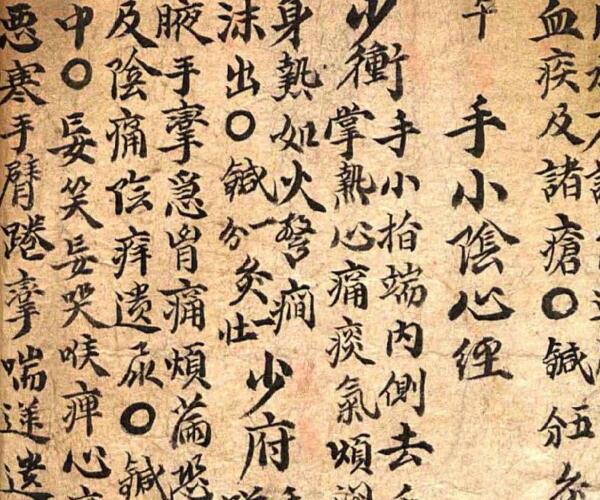 血疾及諸瘡○鍼五分灸
手小陰心經
少衝手小指端内側去
掌熱心痛痰氣煩
身熱如火驚癇
沫出○鍼一分灸一壯
少府
腋手攣急胷痛煩滿恐
及陰痛陰痒遺尿○鍼
中○妄笑妄哭喉痺心
悪寒手臂踡攣喘逆遺